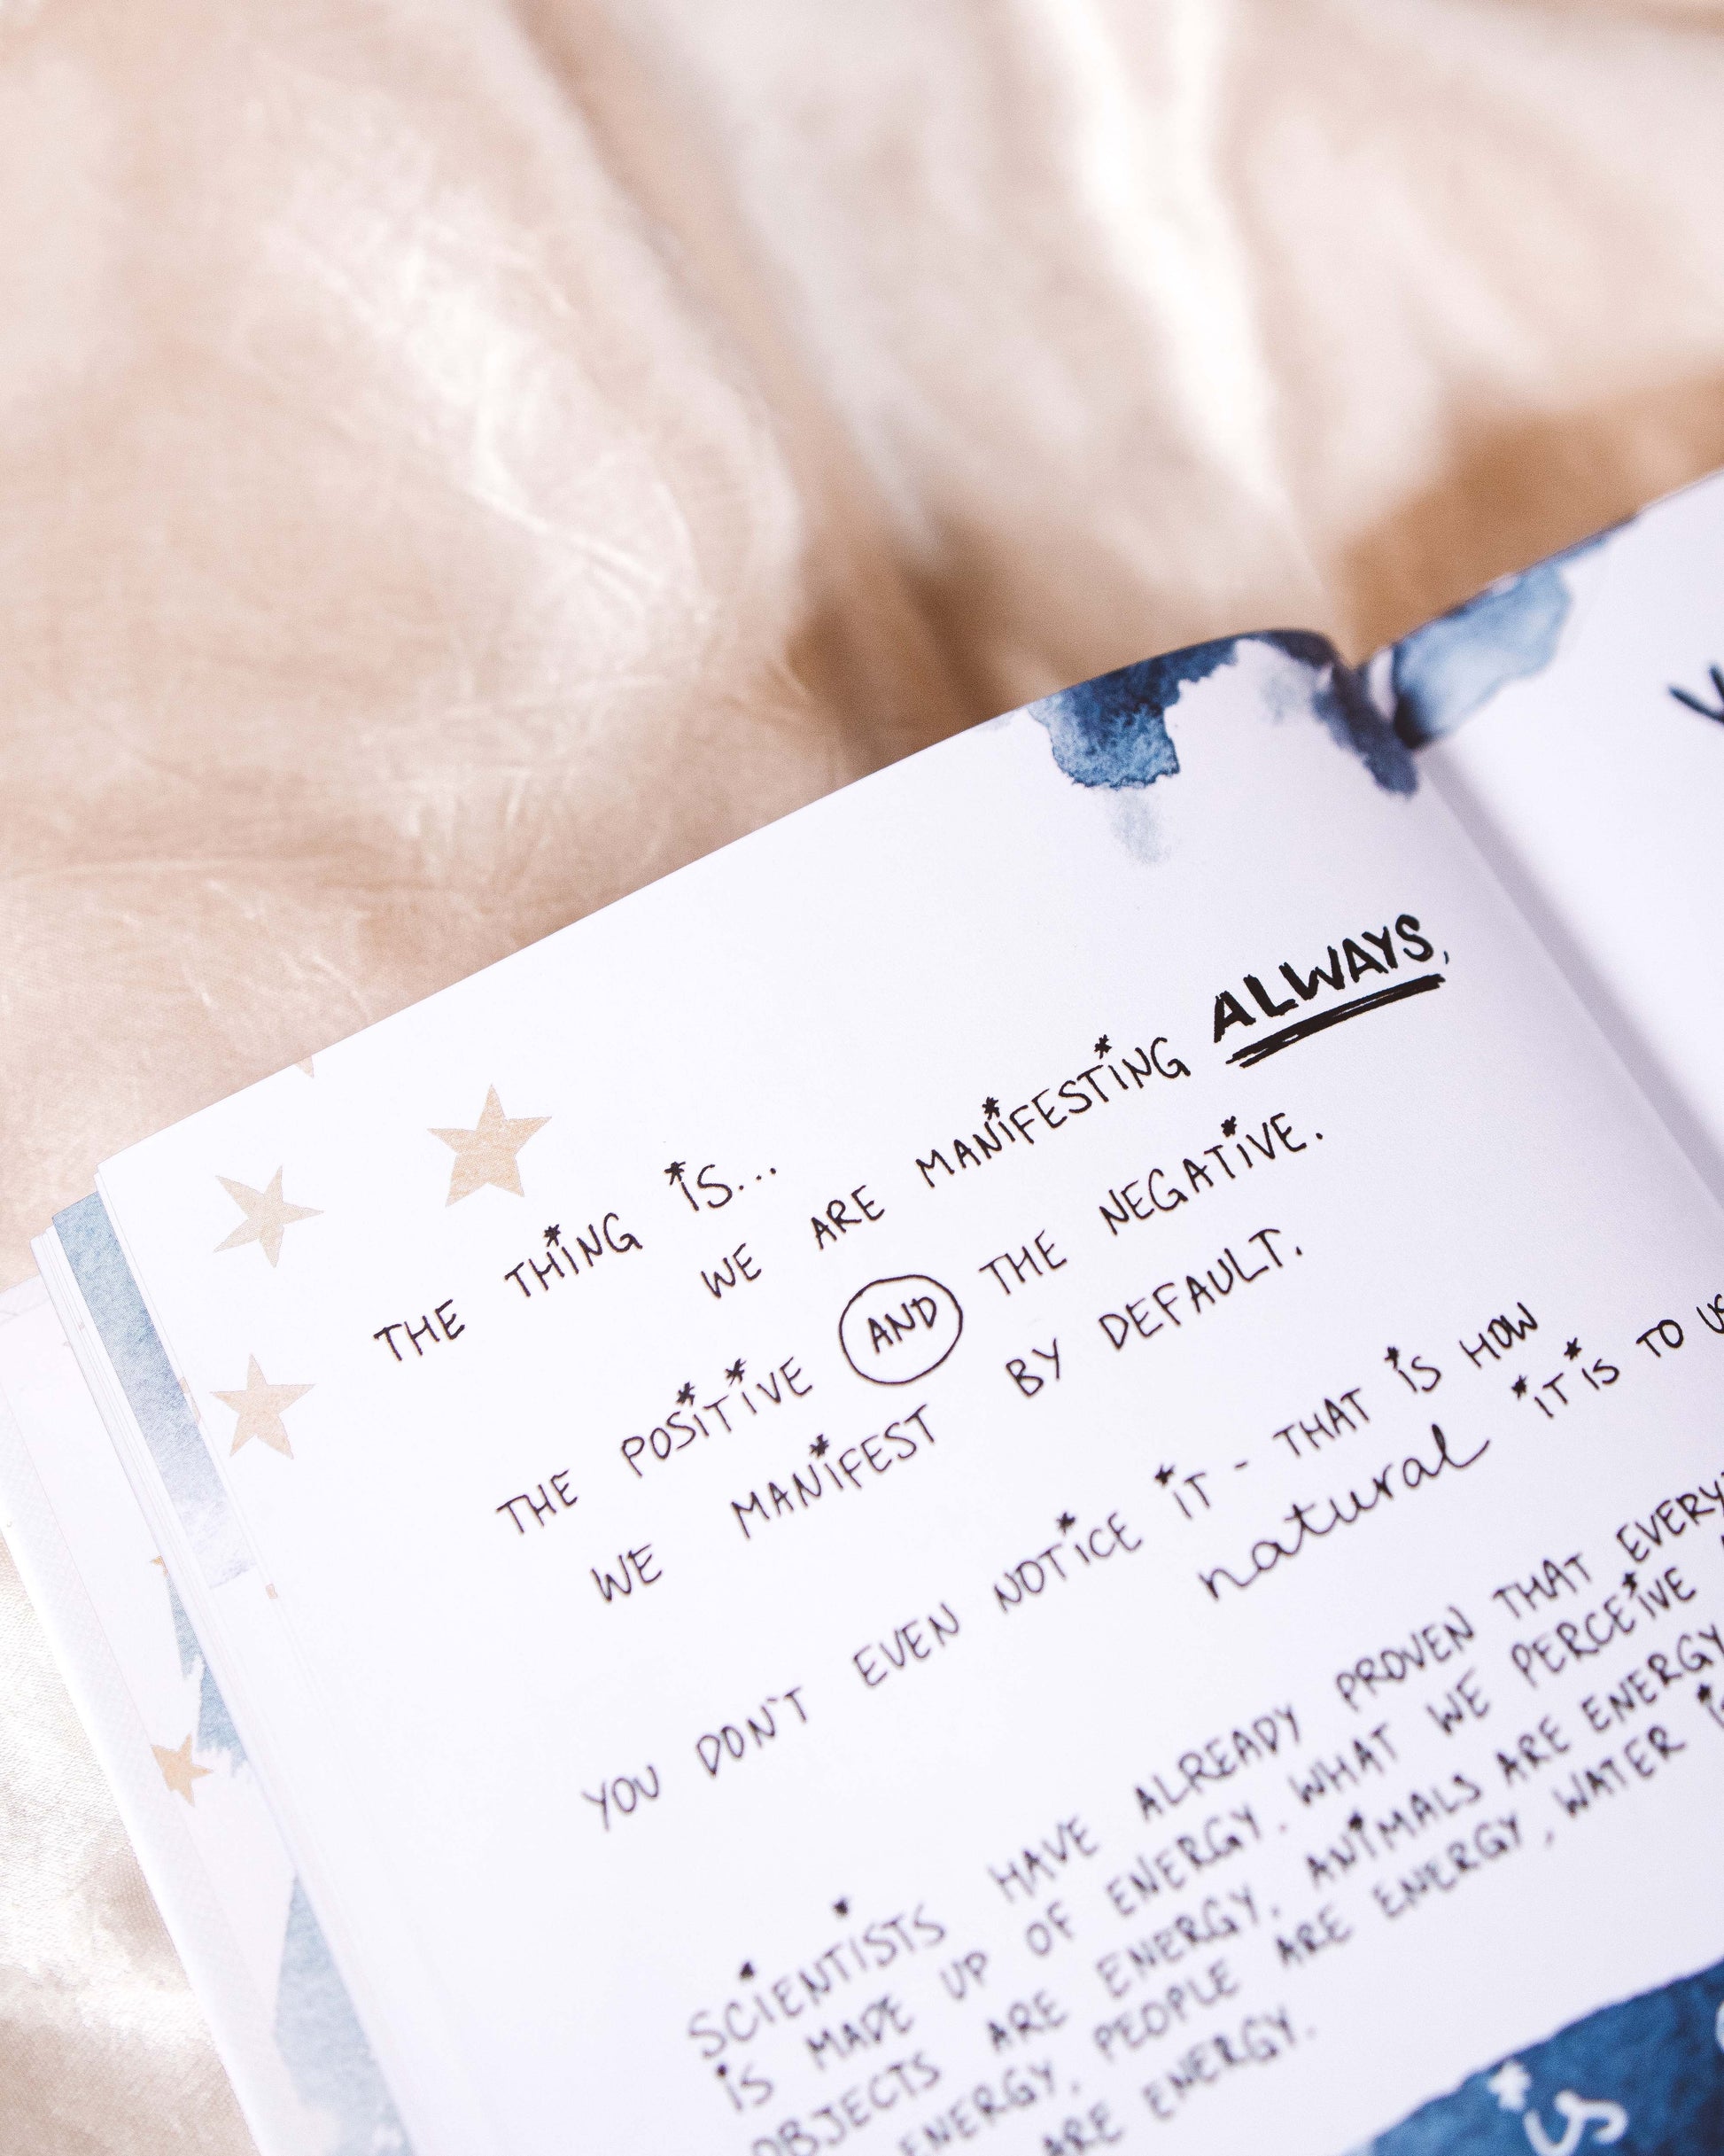 THE THING IS...
WE ARE MANIFESTING ALWAYS,
THE POSITIVE AND THE NEGATIVE.
WE MANIFEST BY DEFAULT.
YOU DON'T EVEN NOTICE IT - THAT IS HOW
natural IT IS TO
SCIENTISTS HAVE ALREADY PROVEN THAT
IS MADE UP OF ENERGY. WHAT WE PERCEIVE
OBJECTS ARE ENERGY, ANIMALS ARE ENERGY
ENERGY, PEOPLE ARE ENERGY, WATER
ARE ENERGY.
is